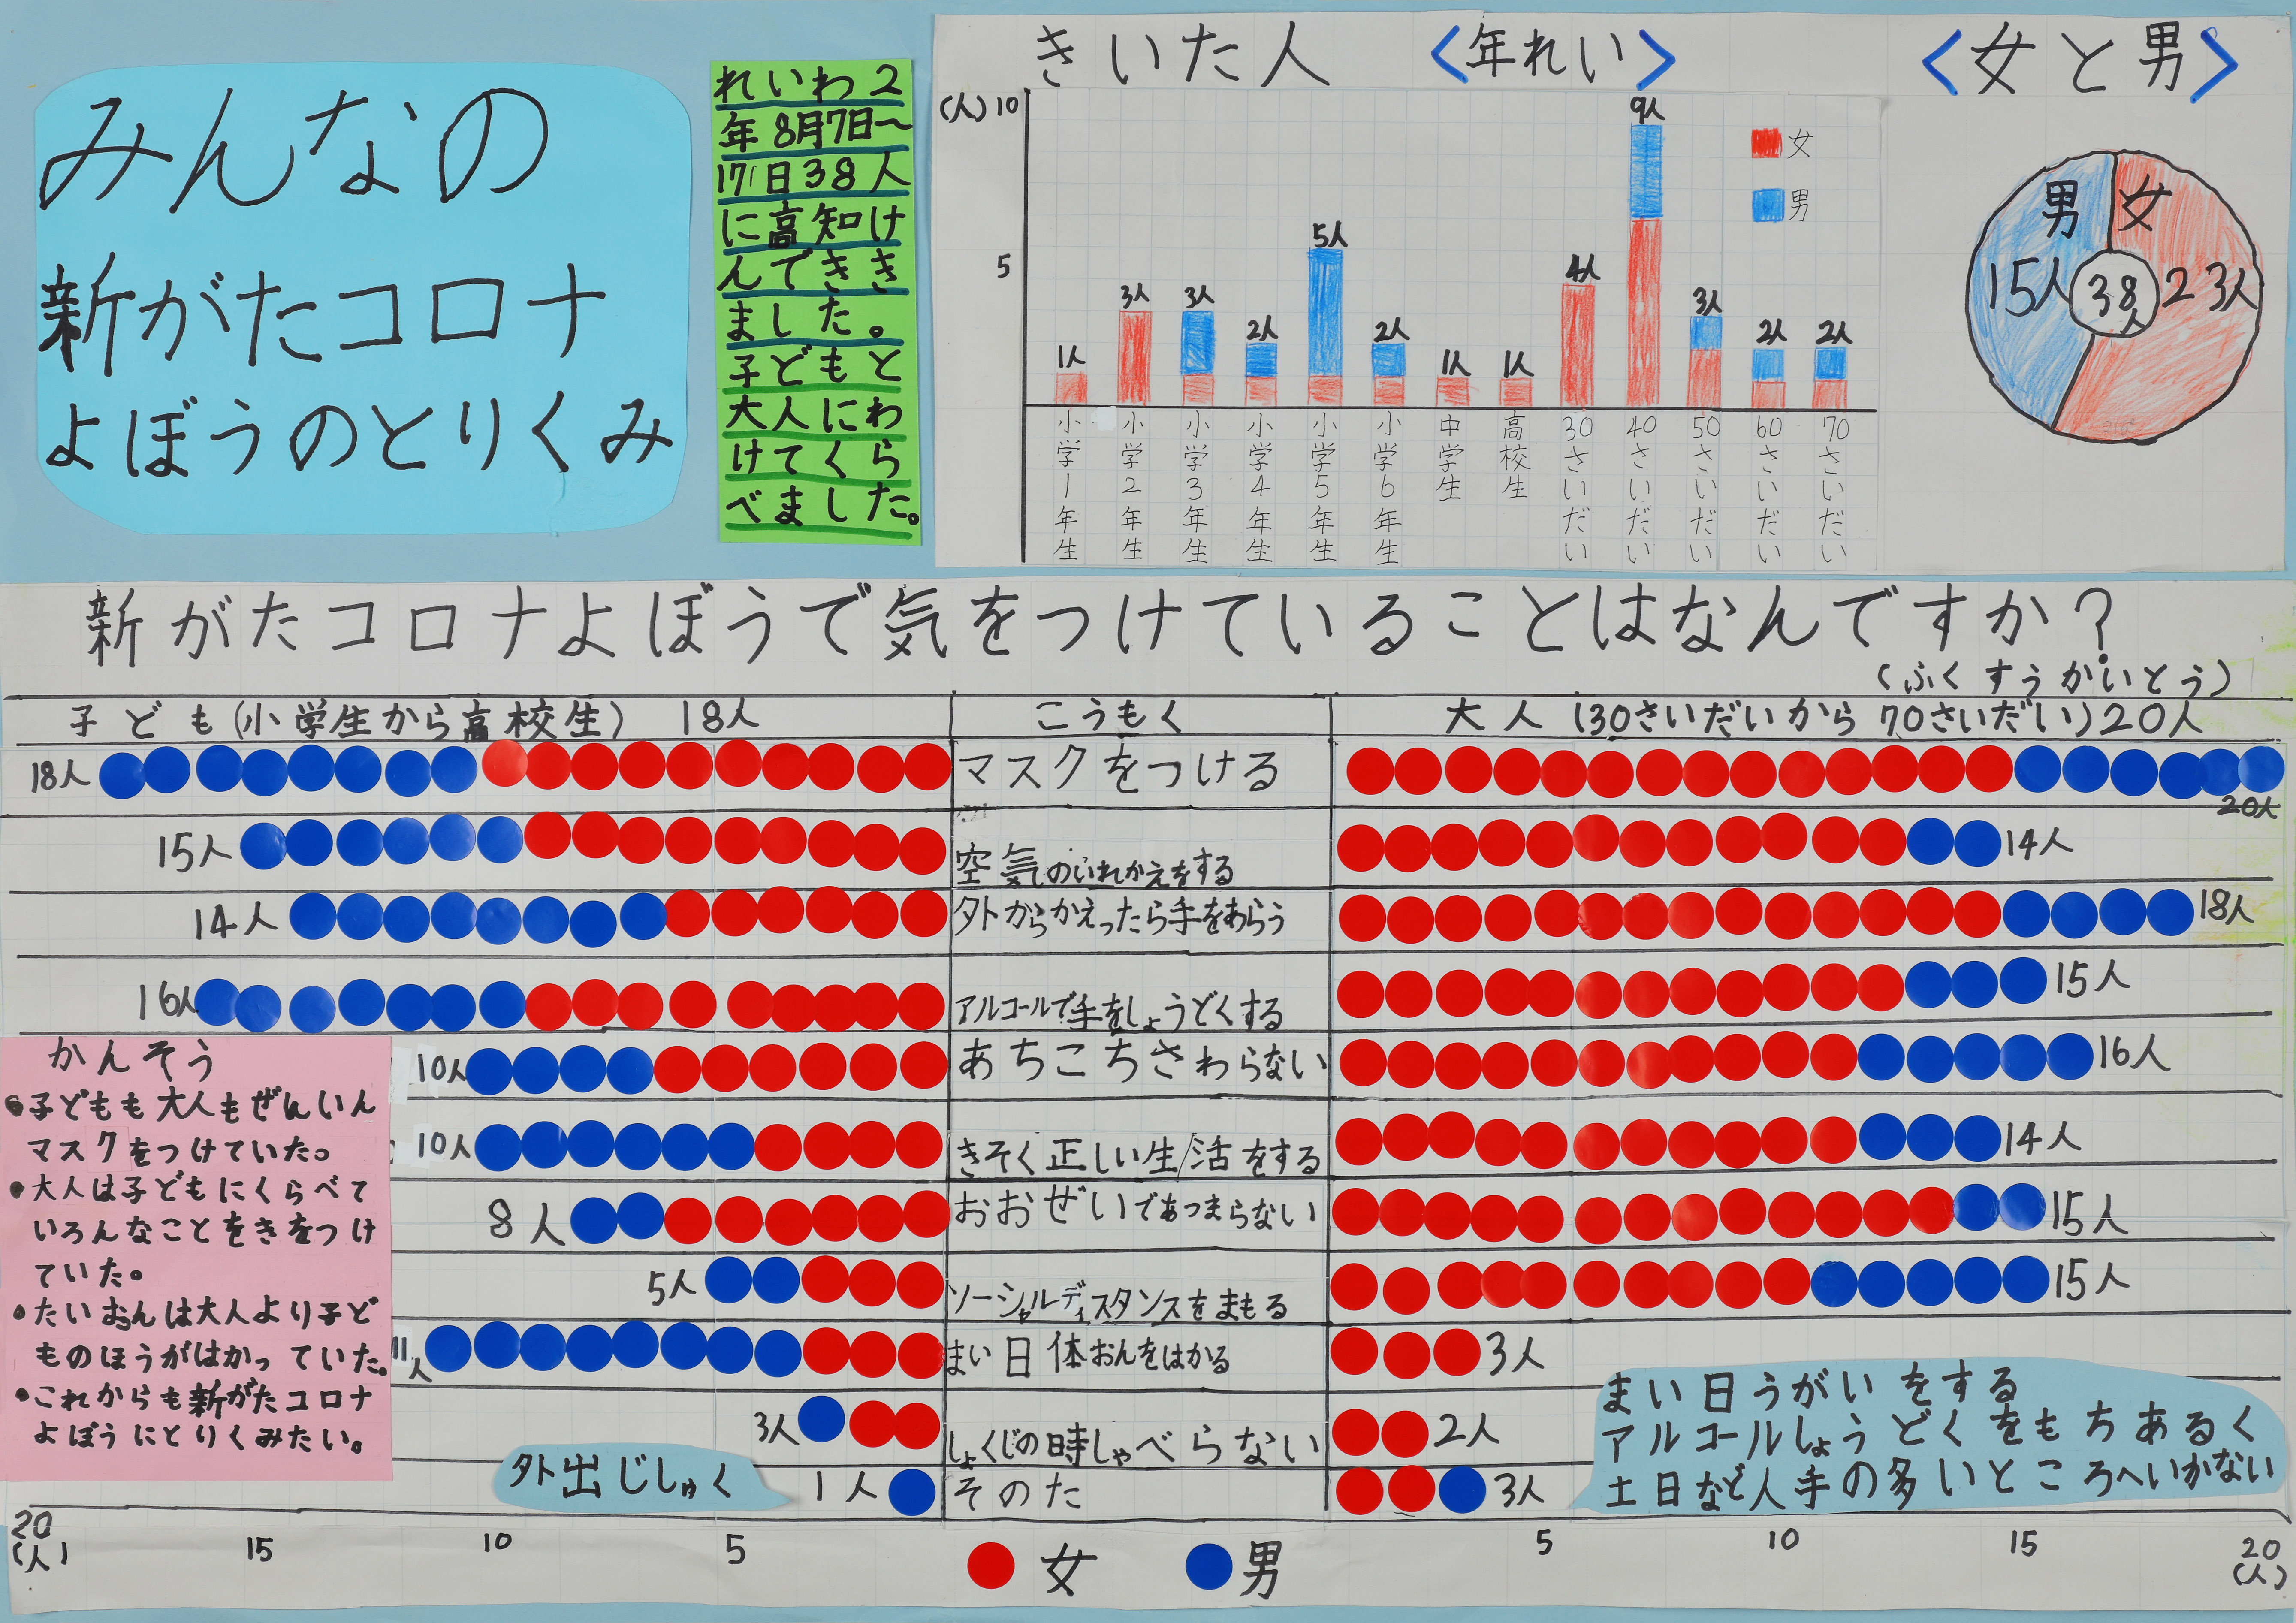 みんなの
新がたコロナ
よぼうのとりくみ
れいわ2
年8月7日〜
17日38人
に高知け
んできき
ました。
子どもと
大人にわ
けてくら
べました。
きいた人 <年れい>
(人) 10
5
1人 3人 3人 2人 5人 2人 1人 1人 4人 9人 3人 2人 2人
女
男
小学1年生
小学2年生
小学3年生
小学4年生
小学5年生
小学6年生
中学生
高校生
30さいだい
40さいだい
50さいだい
60さいだい
70さいだい
<女と男>
男 女
15人 38人 23人
新がたコロナよぼうで気をつけていることはなんですか?
(ふくすうかいとう)
子ども(小学生から高校生) 18人 こうもく 大人(30さいだいから70さいだい)20人
18人 マスクをつける 20人
15人 空気のいれかえをする 14人
14人 外からかえったら手をあらう 18人
16人 アルコールで手をしょうどくする 15人
10人 あちこちさわらない 16人
10人 きそく正しい生活をする 14人
8人 おおぜいであつまらない 15人
5人 ソーシャルディスタンスをまもる 15人
11人 まい日体おんをはかる 3人
3人 しょくじの時しゃべらない 2人
外出じしゅく 1人 そのた 3人
まい日うがいをする
アルコールしょうどくをもちあるく
土日など人手の多いところへいかない
かんそう
•子どもも大人もぜんいん
マスクをつけていた。
•大人は子どもにくらべて
いろんなことをきをつけ
ていた。
•たいおんは大人より子ど
ものほうがはかっていた。
•これからも新がたコロナ
よぼうにとりくみたい。
20 15 10 5 5 10 15 20
(人) (人)
女 男